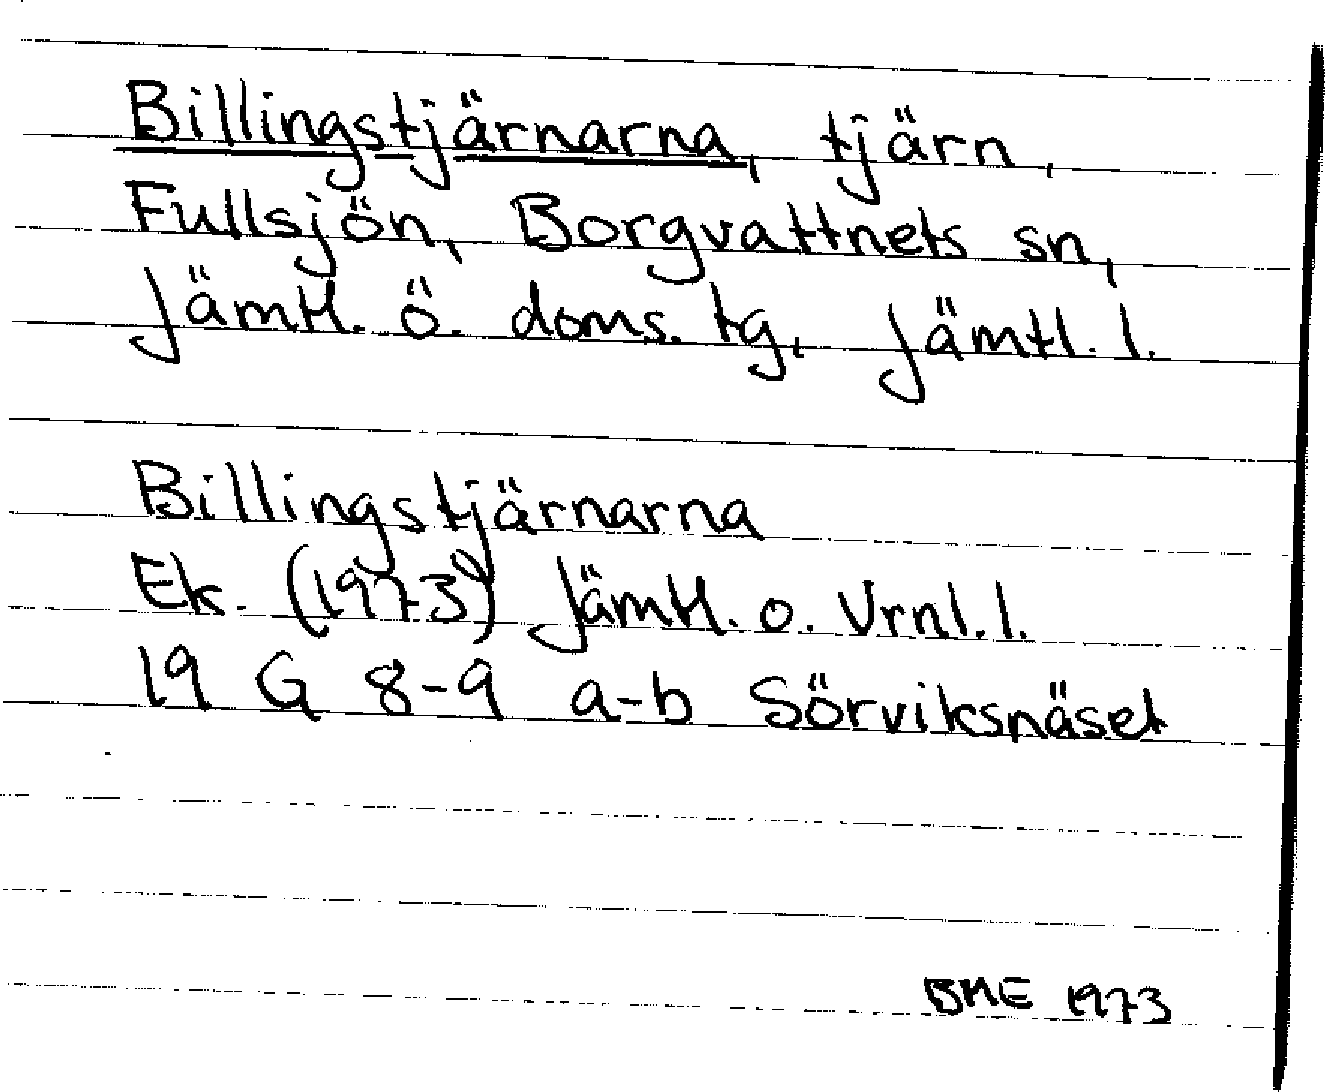 Billingstjärnarna, tjärn,
Fullsjön, Borgvattnets sn,
Jämtl. ö. doms. tg, Jämtl. l.
Billingstjärnarna
Ek. (1973) Jämtl. o. Vrnl. l.
19 G 8-9 a-b Sörviksnäset
BME 1973